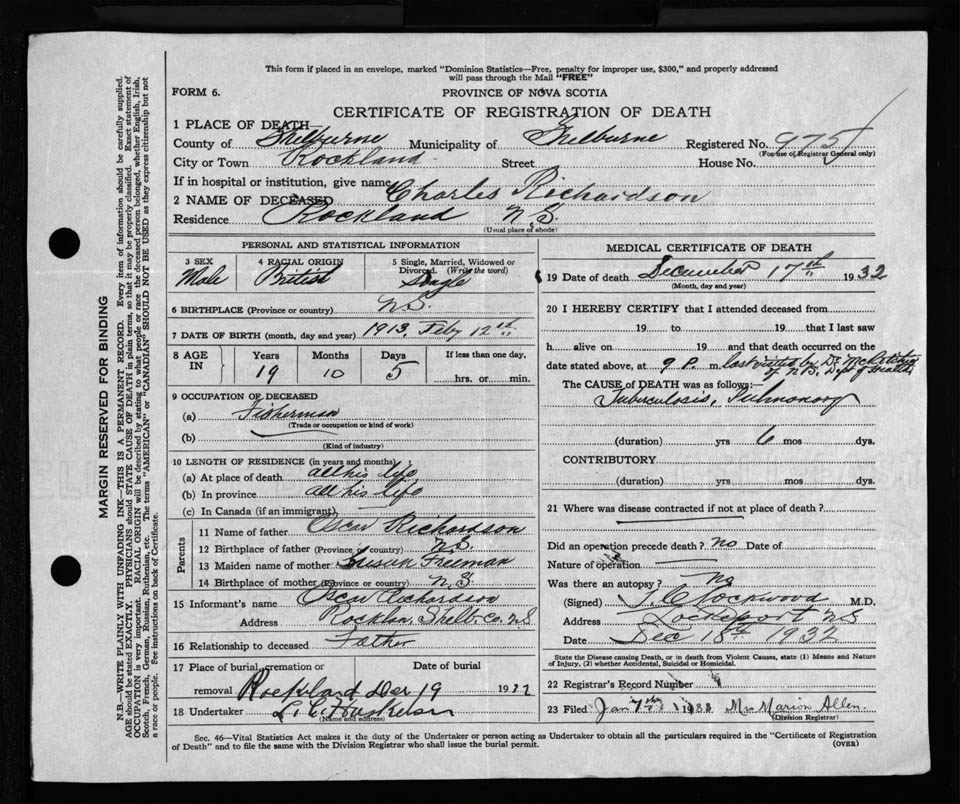 This form if placed in an envelope, marked "Dominion Statistics—Free, penalty for improper use, $300," and properly addressed
will pass through the Mail "FREE"
FORM 6.
PROVINCE OF NOVA SCOTIA
CERTIFICATE OF REGISTRATION OF DEATH
1 PLACE OF DEATH—
County of Shelburne Municipality of Shelburne Registered No. 975
(For use of Registrar General only)
City or Town Rockland Street House No.
If in hospital or institution, give name
2 NAME OF DECEASED Charles Richardson
Residence Rockland N.S.
(Usual place of abode)
MARGIN RESERVED FOR BINDING
N.B.—WRITE PLAINLY WITH UNFADING INK—THIS IS A PERMANENT RECORD. Every item of information should be carefully supplied.
AGE should be stated EXACTLY. PHYSICIANS should STATE CAUSE OF DEATH in plain terms, so that it may be properly classified. Exact statement of
OCCUPATION is very important. RACIAL ORIGIN will be described by stating to what people or race the deceased person belonged, whether English, Irish,
Scotch, French, German, Russian, Ruthenian, etc. The terms "AMERICAN" or "CANADIAN" SHOULD NOT BE USED as they express citizenship but not
a race or people. See instructions on back of Certificate.
PERSONAL AND STATISTICAL INFORMATION
3 SEX
Male
4 RACIAL ORIGIN
British
5 Single, Married, Widowed or
Divorced. (Write the word)
Single
6 BIRTHPLACE (Province or country) N.S.
7 DATE OF BIRTH (month, day and year) 1913 Feby 12th
8 AGE IN
Years Months Days If less than one day,
19 10 5 hrs. or min.
9 OCCUPATION OF DECEASED
(a) Fisherman
(Trade or occupation or kind of work)
(b)
(Kind of industry)
10 LENGTH OF RESIDENCE (in years and months)
(a) At place of death all his life
(b) In province all his life
(c) In Canada (if an immigrant)
Parents
11 Name of father Oscar Richardson
12 Birthplace of father (Province or country) N.S.
13 Maiden name of mother Susan Freeman
14 Birthplace of mother (Province or country) N.S.
15 Informant's name Oscar Richardson
Address Shelb. Co. N.S
16 Relationship to deceased Father
17 Place of burial, cremation or Date of burial
removal Rockland Dec 19 1932
18 Undertaker
(Name and address)
MEDICAL CERTIFICATE OF DEATH
19 Date of death December 17th 1932
(Month, day and year)
20 I HEREBY CERTIFY that I attended deceased from
19 to 19 that I last saw
h alive on 19 and that death occurred on the
date stated above, at 9 P. m. last visited by Dr.
of N.S. Dept of Health
The CAUSE OF DEATH was as follows:—
Tuberculosis, Pulmonary
(duration) yrs 6 mos dys.
CONTRIBUTORY
(duration) yrs mos dys.
21 Where was disease contracted if not at place of death?
Did an operation precede death? no Date of
Nature of operation
Was there an autopsy? no
(Signed) Lockwood M.D.
Address Lockeport NS
Date Dec 18th 1932
State the Disease causing Death, or in death from Violent Causes, state (1) Means and Nature
of Injury, (2) whether Accidental, Suicidal or Homicidal.
22 Registrar's Record Number
23 Filed Jan 7th 1933 Mrs Marion Allen
(Division Registrar)
Sec. 46—Vital Statistics Act makes it the duty of the Undertaker or person acting as Undertaker to obtain all the particulars required in the "Certificate of Registration
of Death" and to file the same with the Division Registrar who shall issue the burial permit.
(OVER)